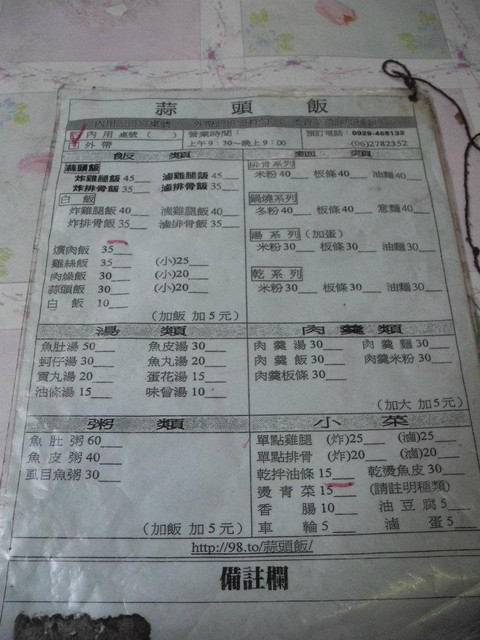 蒜頭飯
內用 桌號( ) 營業時間: 預訂電話:0929-468132
外帶 上午9:30~晚上9:00 (06)2782352
飯 類
蒜頭飯
炸雞腿飯45 滷雞腿飯45
炸排骨飯35 滷排骨飯35
白 飯
炸雞腿飯40 滷雞腿飯40
炸排骨飯35 滷排骨飯35
爌肉飯 35
雞絲飯 35 (小)25
肉燥飯 30 (小)20
蒜頭飯 30 (小)20
白 飯 10
(加飯 加5元)
麵 類
排骨系列
米粉40 板條40 油麵40
鍋燒系列
冬粉40 板條40 意麵40
湯系列(加蛋)
米粉30 板條30 油麵30
乾系列
米粉30 板條30 油麵30
湯 類
魚肚湯50 魚皮湯30
蚵仔湯30 魚丸湯20
貢丸湯20 蛋花湯15
油條湯15 味曾湯10
肉羹類
肉羹湯30 肉羹麵30
肉羹飯30 肉羹米粉30
肉羹板條30
(加大 加5元)
粥 類
魚肚粥60
魚皮粥40
虱目魚粥30
(加飯 加5元)
小 菜
單點雞腿 (炸)25 (滷)25
單點排骨 (炸)20 (滷)20
乾拌油條15 乾燙魚皮30
燙青菜15 (請註明種類)
香 腸10 油豆腐5
車 輪5 滷 蛋5
http://98.to/蒜頭飯/
備註欄